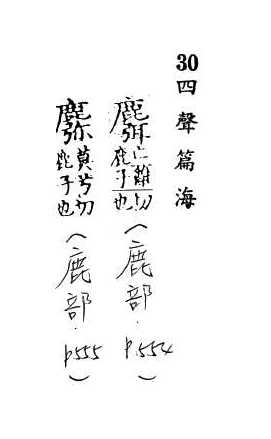 30四聲篇海
麛 亡切
鹿子也
(鹿部．p.554)
莫兮切
鹿子也
(鹿部．p555)